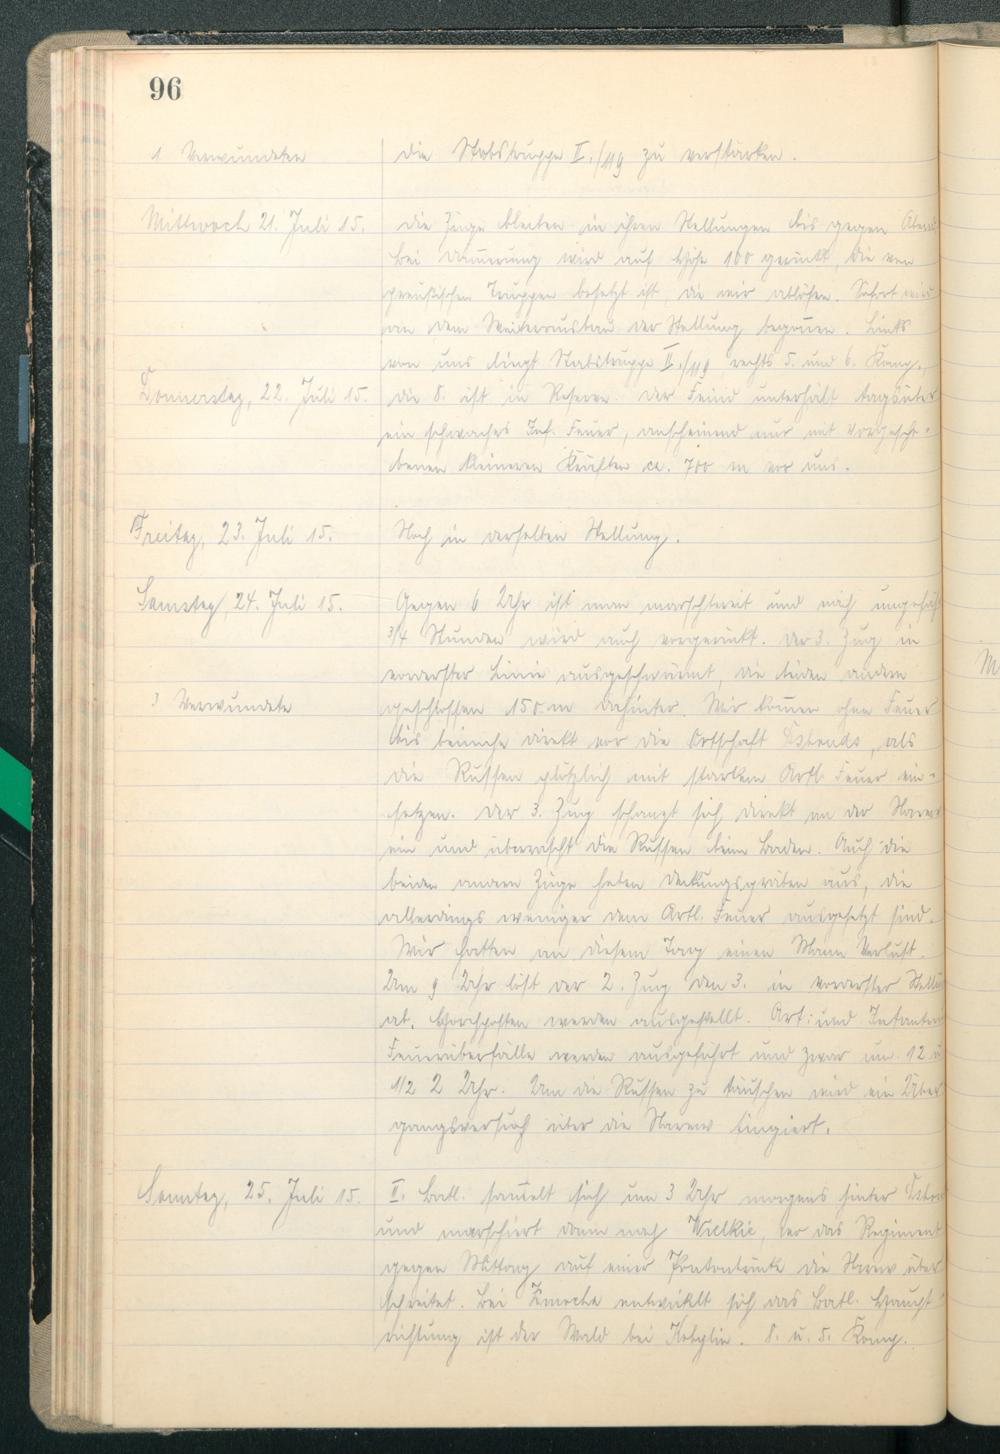 96
1 Verwundeten
die Stabstruppe II./119 zu verstärken.
Mittwoch 21. Juli 15.
Die Züge bleiben in ihren Stellungen bis gegen Abend
Bei Dämmerung wird auf Höhe 100 gerückt, die von
preußischen Truppen besetzt ist, die wir ablösen. Sofort wird
an dem Weiterausbau der Stellung begonnen. Links
von uns liegt Stabstruppe II./119, rechts 5. und 6. Komp.,
Donnerstag, 22. Juli 15.
die 8. ist in Reserve. Der Feind unterhält tagsüber
ein schwaches Inf. Feuer, anscheinend nur mit vorgescho-
benen kleineren Kräften ca. 700 m vor uns.
Freitag, 23. Juli 15.
Noch in derselben Stellung.
Samstag, 24. Juli 15.
Gegen 6 Uhr ist man marschbereit und nach ungefähr
3/4 Stunden wird auch vorgerückt. Der 3. Zug in
vorderster Linie ausgeschwärmt, die beiden andern
3 Verwundete
geschlossen 150 m dahinter. Wir kommen ohne Feuer
bis beinahe direkt vor die Ortschaft, als
die Russen plötzlich mit starkem Artl. Feuer ein-
setzen. Der 3. Zug schanzt sich direkt an der Narew
ein und überrascht die Russen beim Baden. Auch die
beiden andern Züge heben Deckungsgräben aus, die
allerdings weniger dem Artl. Feuer ausgesetzt sind.
Wir hatten an diesem Tag einen Mann Verlust.
Um 9 Uhr löst der 2. Zug den 3. in vorderster Stellu
ab. Horchposten werden ausgestellt. Art: und Infanterie
Feuerüberfälle werden ausgeführt und zwar um 12 u
1/2 2 Uhr. Um die Russen zu täuschen wird ein Über
gangsversuch über die Narew fingiert.
Sonntag, 25. Juli 15.
II. Batl. sammelt sich um 3 Uhr morgens hinter
und marschiert dann nach Wielkie, wo das Regiment
gegen Mittag auf einer Pontonbrücke die Narew über
schreitet. Bei entwickelt sich das Batl. Haupt
richtung ist der Wald bei Kobylin. 8. u. 5. Komp.